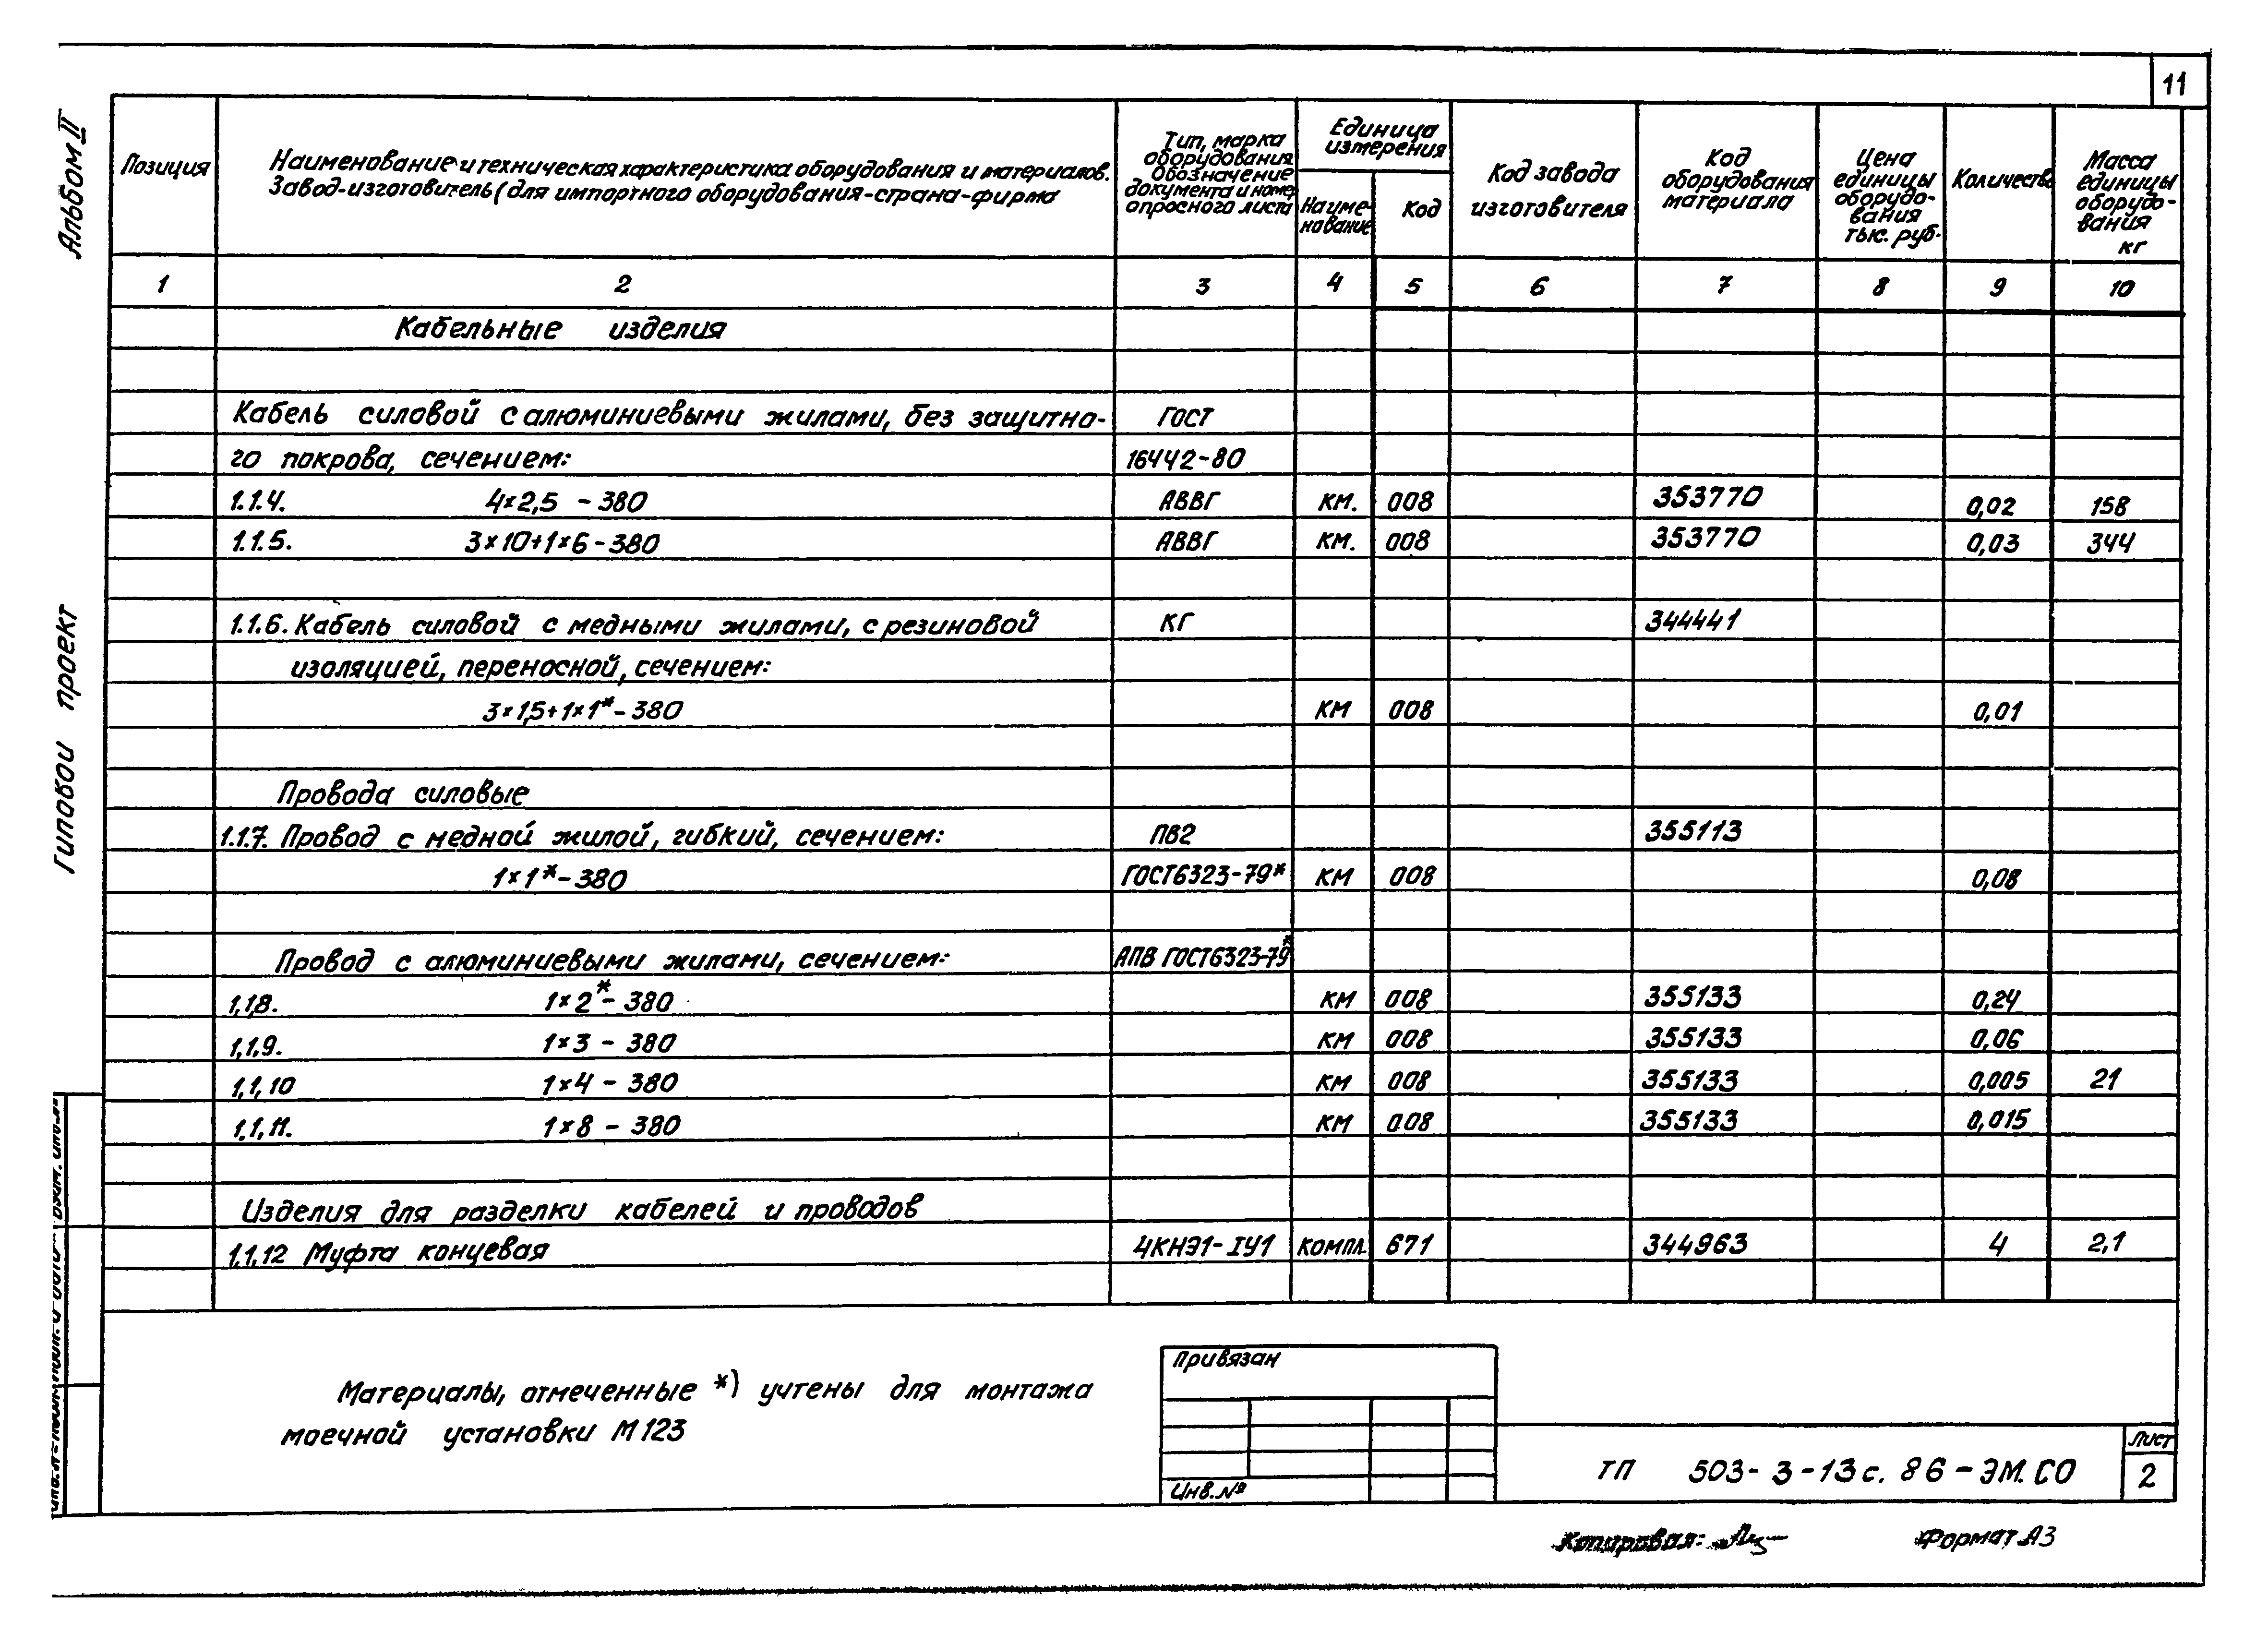 11
Альбом II
Типовой проект
Позиция
Наименование и техническая характеристика оборудования и материалов.
Завод-изготовитель (для импортного оборудования-страна-фирма
Тип, марка
оборудования
Обозначение
документа и номер
опросного листа
Единица
измерения
Наиме-
нование
Код
Код завода
изготовителя
Код
оборудования
материала
Цена
единицы
оборудо-
вания
тыс. руб.
Количество
Масса
единицы
оборудо-
вания
кг
1 2 3 4 5 6 7 8 9 10
Кабельные изделия
Кабель силовой с алюминиевыми жилами, без защитно- ГОСТ
го покрова, сечением: 16442-80
1.1.4. 4×2,5 - 380 АВВГ КМ. 008 353770 0,02 158
1.1.5. 3×10+1×6-380 АВВГ КМ. 008 353770 0,03 344
1.1.6. Кабель силовой с медными жилами, с резиновой КГ 344441
изоляцией, переносной, сечением:
3×1,5+1×1*-380 КМ 008 0,01
Провода силовые
1.1.7. Провод с медной жилой, гибкий, сечением: ПВ2 355113
1×1*-380 ГОСТ6323-79* КМ 008 0,08
Провод с алюминиевыми жилами, сечением: АПВ ГОСТ6323-79*
1,1,8. 1×2*- 380 КМ 008 355133 0,24
1,1,9. 1×3 - 380 КМ 008 355133 0,06
1,1,10 1×4 - 380 КМ 008 355133 0,005 21
1.1,11. 1×8 - 380 КМ 008 355133 0,015
Изделия для разделки кабелей и проводов
1.1,12 Муфта концевая 4КНЭ1-IУ1 КОМПЛ. 671 344963 4 2,1
Материалы, отмеченные *) учтены для монтажа
моечной установки М123
Привязан
Инв.№
ТП 503-3-13с.86-ЭМ.СО
Лист
2
Копировал:
Формат А3